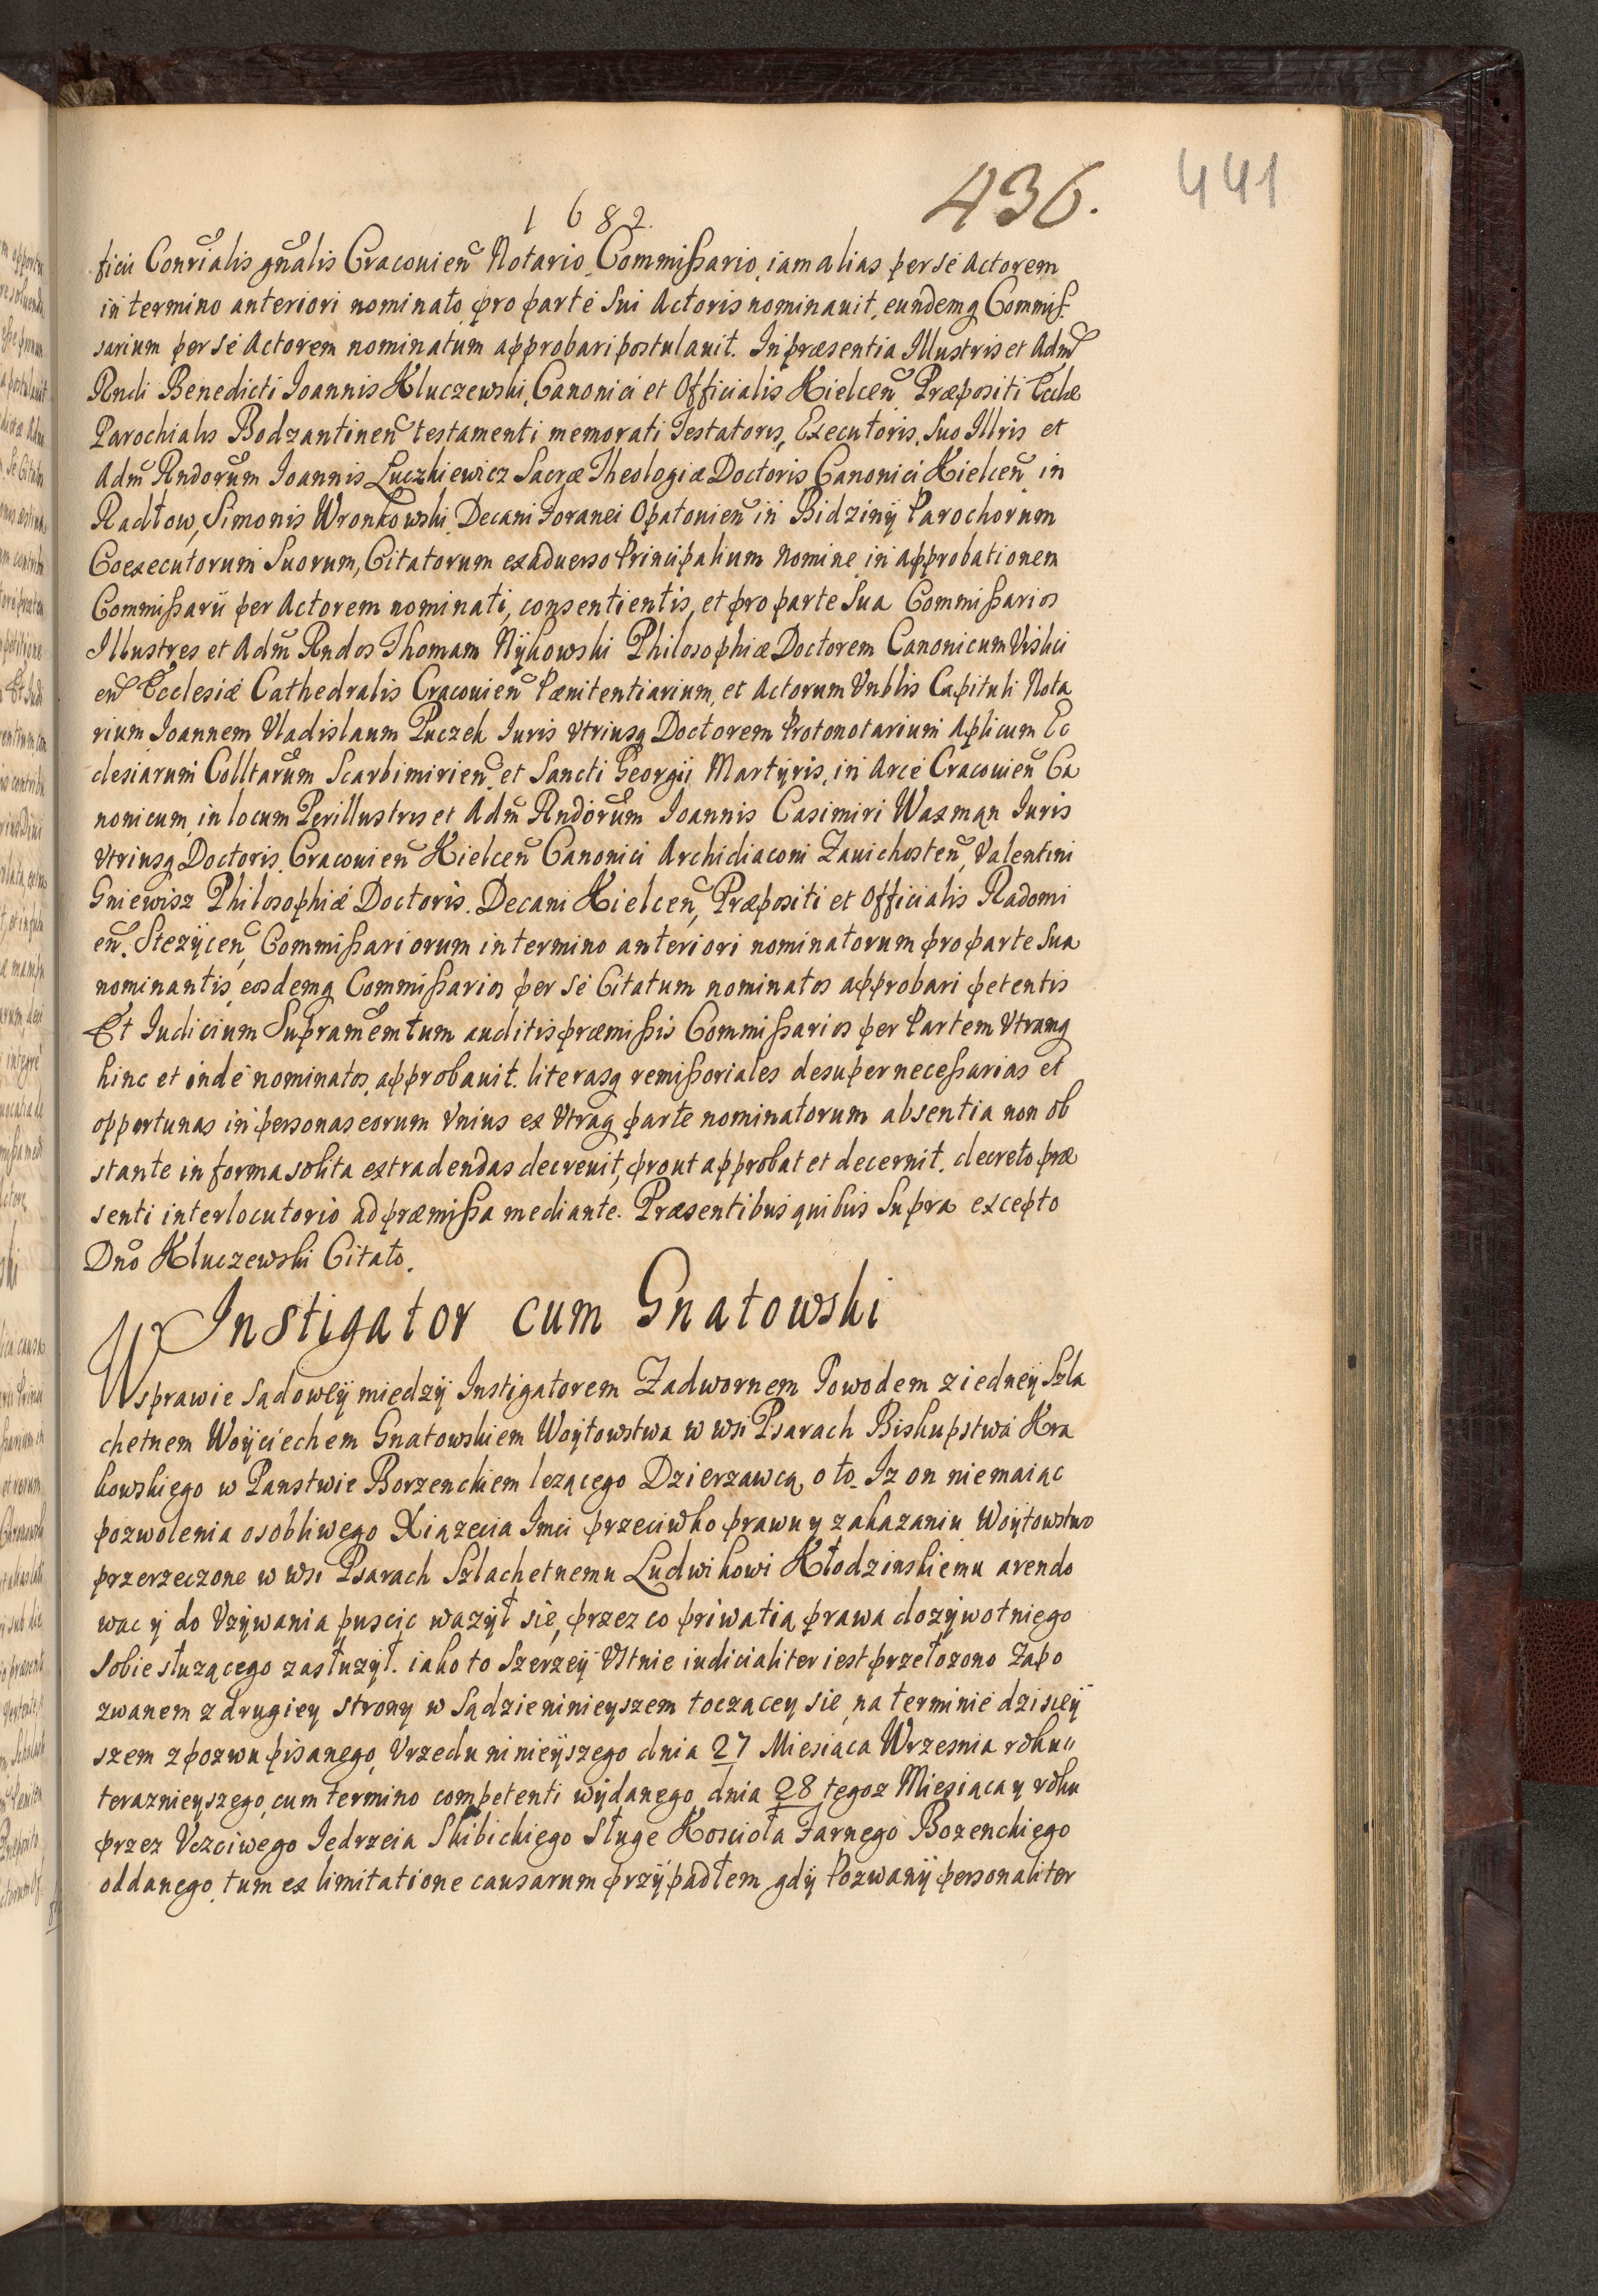 1682.
436.
441
ficii Conrialis gnalis Cracouien Notario Commissario iam alias per se Actorem
in termino anteriori nominato pro parte sui Actoris nominauit, eundemq Commis
sarium per se Actorem nominatum approbari postulauit. In præsentia Illustris et Adm
Rndi Benedicti Ioannis Kluczewski, Canonici et Officialis Kielcen Præpositi Ecclæ
Parochialis Bodzantinen testamenti memorati Testatoris, Executoris, suo Illris et
Adm Rndorum Ioannis Łuczkiewicz Sacræ Theologiæ Doctoris Canonici Kielcen in
Radłow, Simonis Wronkowski Decani Foranei Opatouien in Bidziny Parochorum
Coexecutorum Suorum, Citatorum exaduerso Principalium nomine in approbationem
Commissarii per Actorem nominati, consentientis, et pro parte sua Commissarios
Illustres et Adm Rndos Thomam Nykowski Philosophiæ Doctorem Canonicum Vislici
en Ecclesiæ Cathedralis Cracouien Pænitentiarium, et Actorum Vnblis Capituli Nota
rium Ioannem Vladislaum Puczek Iuris Vtriusq Doctorem Protonotarium Aplicum Ec
clesiarum Colltarum Scarbimirien et Sancti Georgii Martyris, in Arce Cracouien Ca
nonicum, in locum Perillustris et Adm Rndorum Ioannis Casimiri Waxman Iuris
Vtriusq Doctoris, Cracouien Kielcen Canonici Archidiaconi Zauichosten, Valentini
Gniewisz Philosophiæ Doctoris. Decani Kielcen, Præpositi et Officialis Radomi
en. Stezycen, Commissariorum in termino anteriori nominatorum pro parte sua
nominantis, eosdemq Commissarios per se Citatum nominatos approbari petentis
Et Iudicium Supramemtum auditis præmissis Commissarios per Partem Vtramq
hinc et inde nominatos, approbauit. literasq remissoriales desuper necessarias et
opportunas in personas eorum Vnius ex Vtraq parte nominatorum absentia non ob
stante in forma solita extradendas decreuit, prout approbat et decernit, decreto præ
senti interlocutorio ad præmissa mediante. Præsentibus quibus Supra excepto
Dno Kluczewski Citato.
Instigator cum Gnatowski
W sprawie sądowey miedzy Instigatorem Zadwornem Powodem ziedney Szla
chetnem Woyciechem Gnatowskiem Woytowstwa w wsi Psarach Biskupstwa Kra
kowskiego w Panstwie Borzenckiem lezącego Dzierzawcą, o to Iz on niemaiąc
pozwolenia osobliwego Xiązecia Imci przeciwko prawu y zakazaniu Woytowstwo
przerzeczone w wsi Psarach Szlachetnemu Ludwikowi Kłodzinskiemu arendo
wac y do Vzywania puscic wazył sie, przez co priwatią prawa dozywotniego
sobie słuzącego zasłuzył. iako to szerzey Vstnie iudicialiter iest przełozono Zapo
zwanem z drugiey strony w Sądzie ninieyszem toczącey sie, na terminie dzisiey
szem z pozwu pisanego, Vrzedu ninieyszego dnia 27 Miesiąca Wrzesnia roku
teraznieyszego, cum termino competenti wydanego, dnia 28 tegoz Miesiąca y roku
przez Vczciwego Iedrzeia Skibickiego Sługe Kosciola Farnego Bozenckiego
oddanego, tum ex limitatione causarum przypadłem, gdy Pozwany personaliter